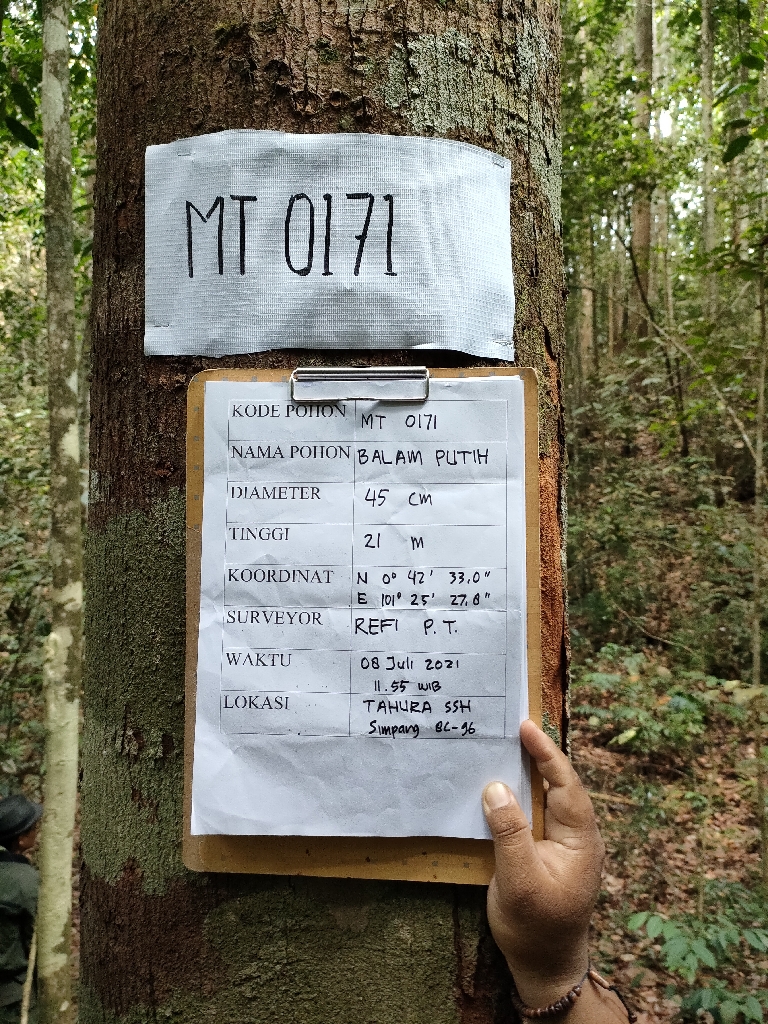 MT 0171
KODE POHON MT 0171
NAMA POHON BALAM PUTIH
DIAMETER 45 cm
TINGGI 21 m
KOORDINAT N 0° 42' 33.0"
E 101° 25' 27.8"
SURVEYOR REFI P.T.
WAKTU 08 Juli 2021
11.55 WIB
LOKASI TAHURA SSH
Simpang BC-96